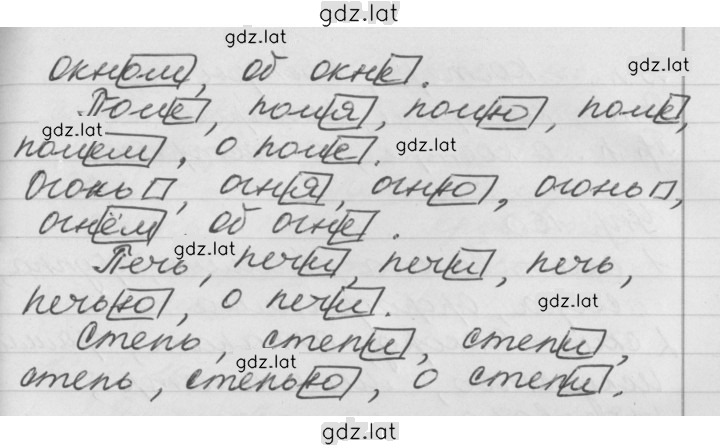 gdz.lat
gdz.lat
окном, об окне.
gdz.lat
Поле, поля, полю, поле,
gdz.lat
полем, о поле.
gdz.lat
Огонь□, огня, огню, огонь□,
огнём об огне.
gdz.lat
Печь, печи, печи, печь,
печью, о печи.
gdz.lat
Степь, степи, степи,
gdz.lat
степь, степью, о степи.
gdz.lat